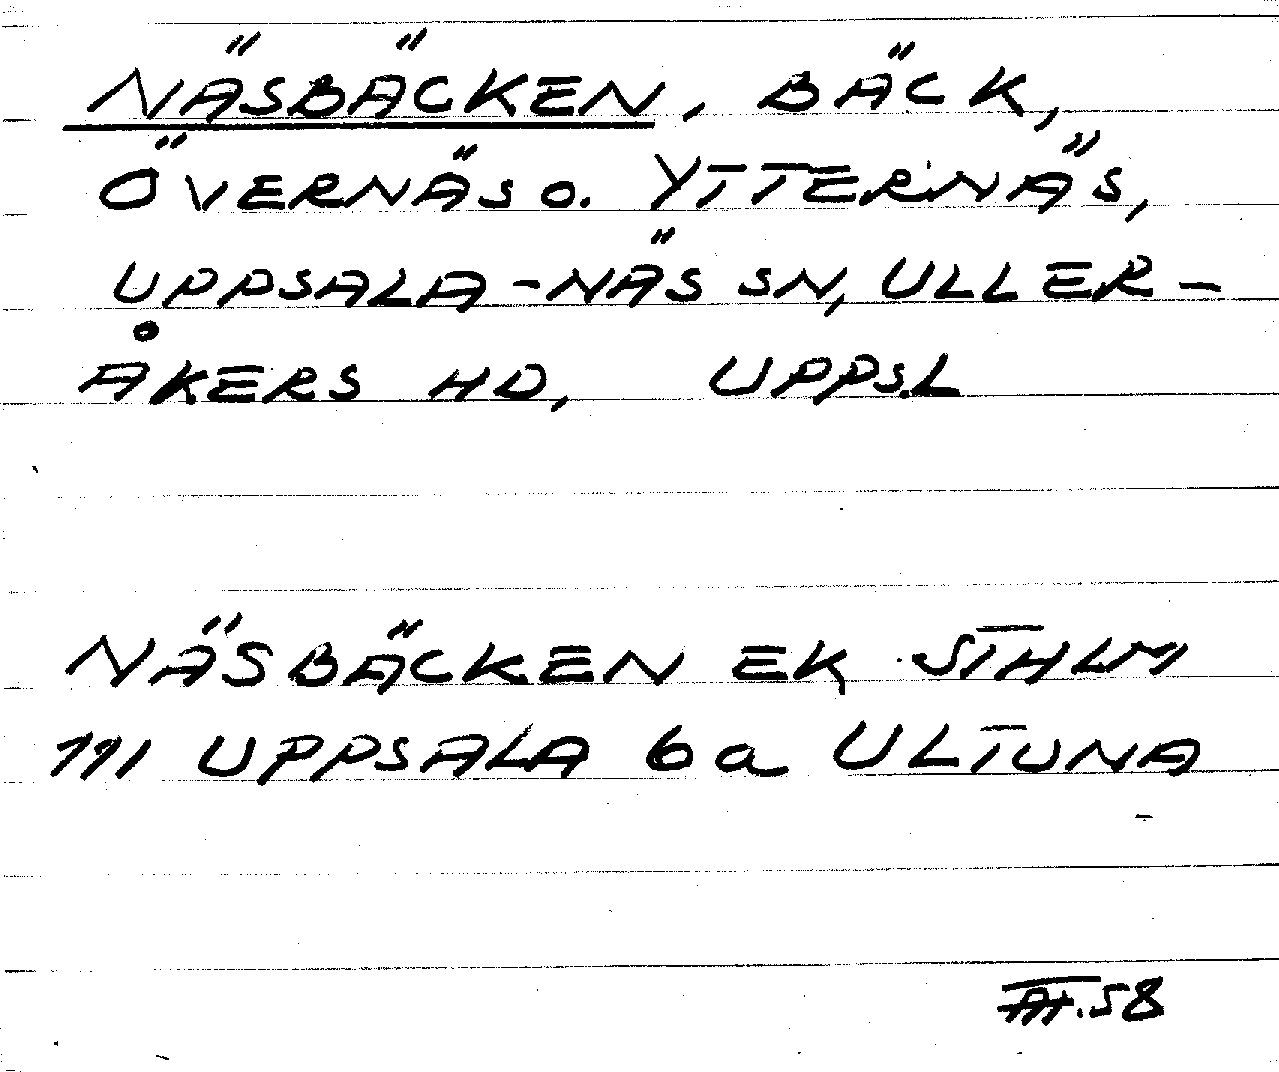 NÄSBÄCKEN, BÄCK,
ÖVERNÄS O. YTTERNÄS,
UPPSALA-NÄS SN, ULLER-
ÅKERS HD, UPPS.L
NÄSBÄCKEN EK STHLM
111 UPPSALA 6a ULTUNA
58